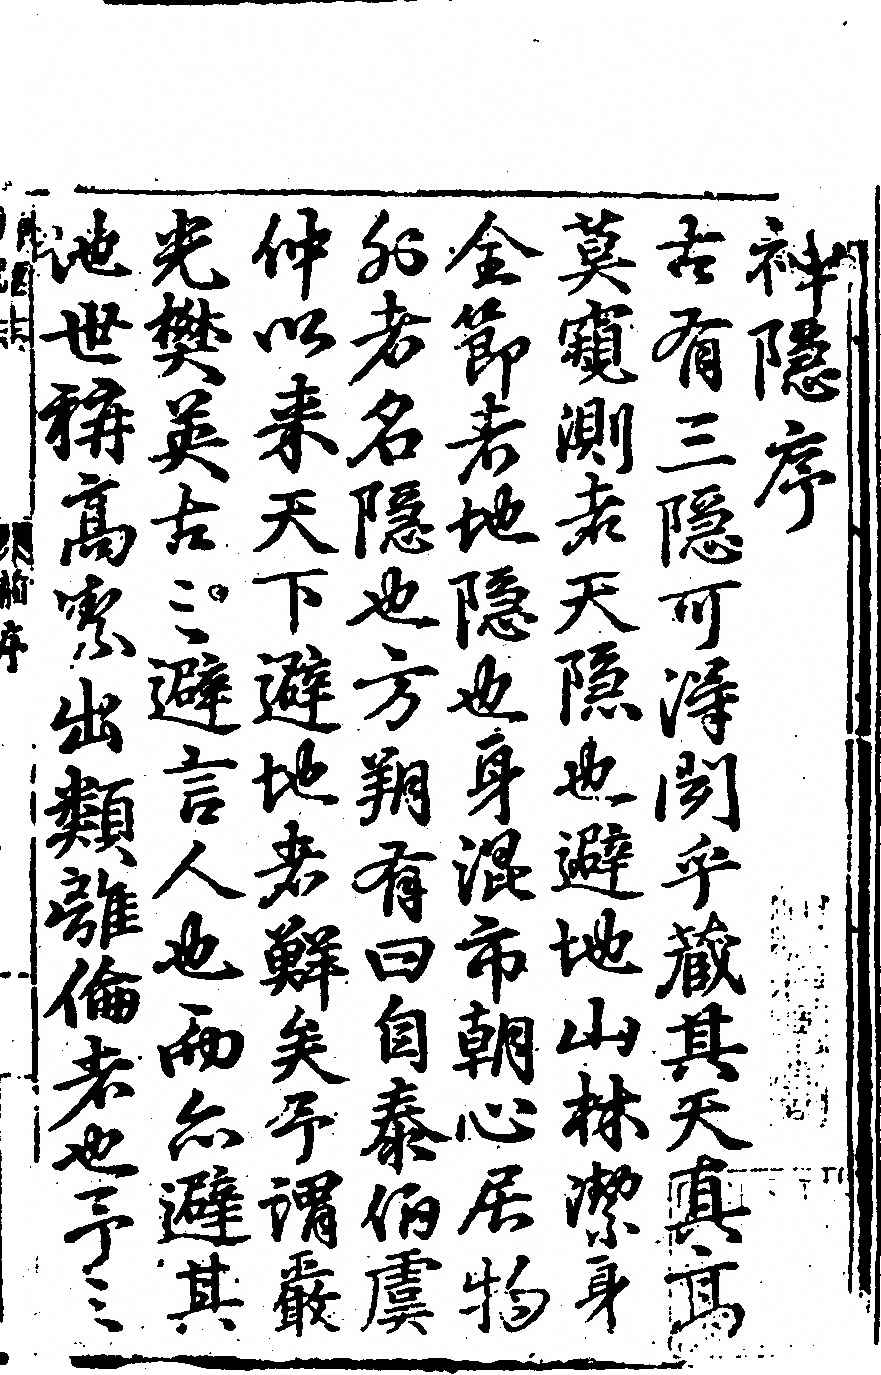 神隱序
古有三隱可得聞乎藏其天真高
莫窺測者天隱也避地山林潔身
全節者地隱也身混市朝心居物
外者名隱也方朔有曰自泰伯虞
仲以来天下避地者鮮矣予謂嚴
光樊英古之避言人也而亦避其
地世稱高潔出類離倫者也予之
序